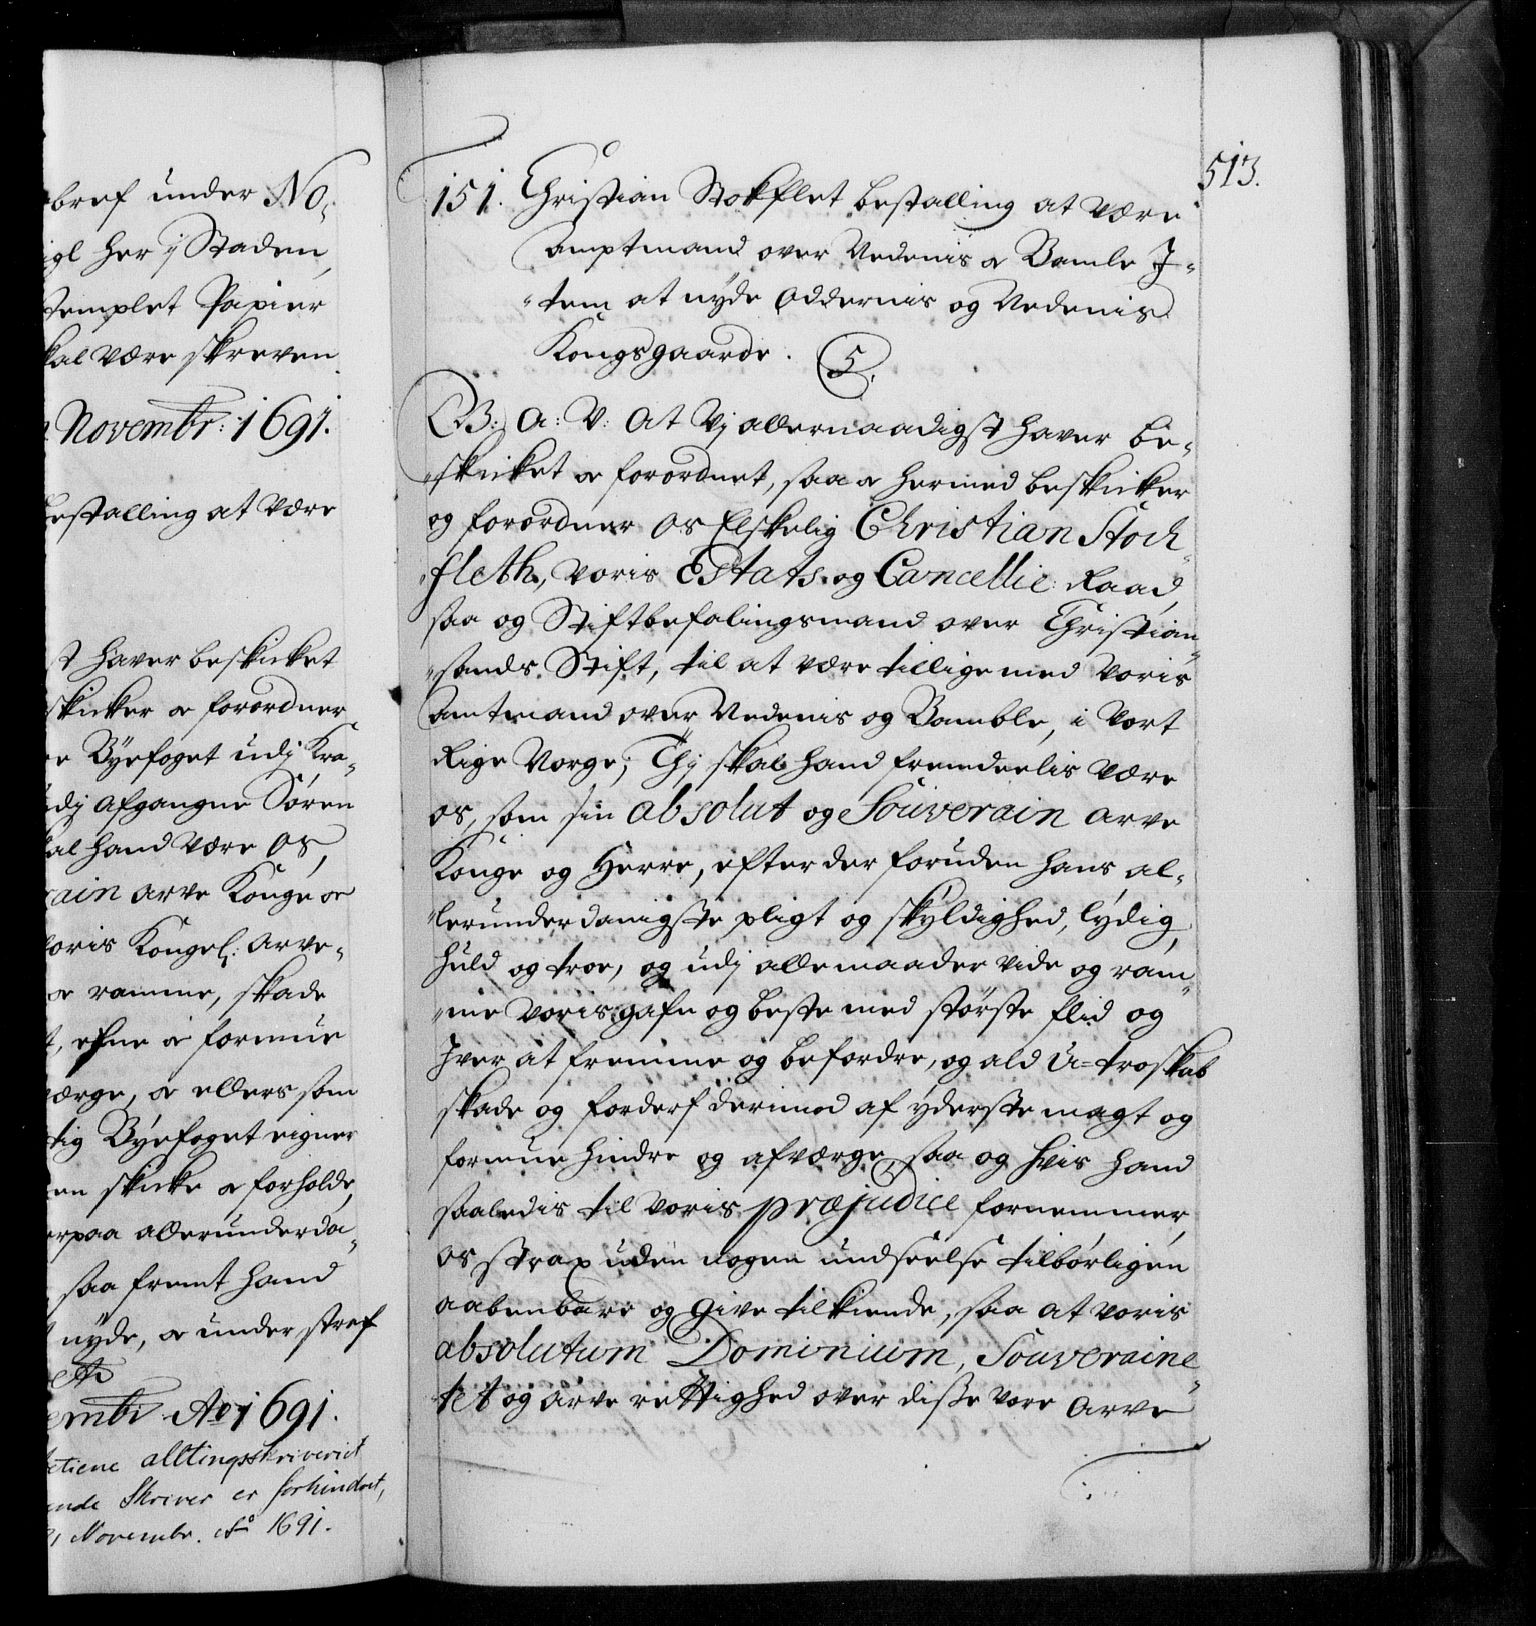 bref under No,
igl her i Staden,
stemplet Papier
skal være skreven
Novembr: 1691.
Bestalling at være
st haver beskicket
skicker og forordner
Byefoget udj Kra-
udj afgangne Søren
skal hand være Os,
rain arve Konge og
Voris Kongel: Arve-
og ramme, skade
efne og formue
værge, og ellers som
tig Byefoget eigner
en skicke og forholde,
erpaa allerunderda-
saa fremt hand
nyde, og under straf
embr Ao 1691.
alltingsskriveriet
Skriver er forhindret,
21 Novembr. Ao 1691.
513.
151. Christian Stokflet bestalling at være
Amptmand over Nedenis og Bamle I-
-tem at nyde Oddernis og Nedenis
Kongsgaarde. 5.
C.B: A: V: At Vj allernaadigst haver be-
-skicket og forordnet, saa og hermed beskicker
og forordner Os Elskelig Christian Stoch-
-fleth, Voris Estats og Cancellie Raad,
saa og Stiftbefalingsmand over Christian-
-sands Stift, til at være tillige med Voris
Amtmand over Nedenis og Bamble, i Vort
Rige Norge; Thj skal hand fremdeelis være
os, som sin absolut og Souverain arve
Konge og Herre, efter der foruden hans al-
-lerunderdanigste pligt og skyldighed, lydig,
huld og troe, og udj alle maader vide og ram-
-me Voris gafn og beste med største flid og
Iver at fremme og befordre, og ald U=troskab
skade og forderf derimod af yderste magt og
formue hindre og afværge, saa og hvis hand
saaledis til Voris præjudice fornemmer,
os strax uden nogen undseelse tilbørligen
aabenbare og give tilkiende, saa at voris
absolutum Dominium, Souveraine-
tet og arve rettighed over disse vore Arve